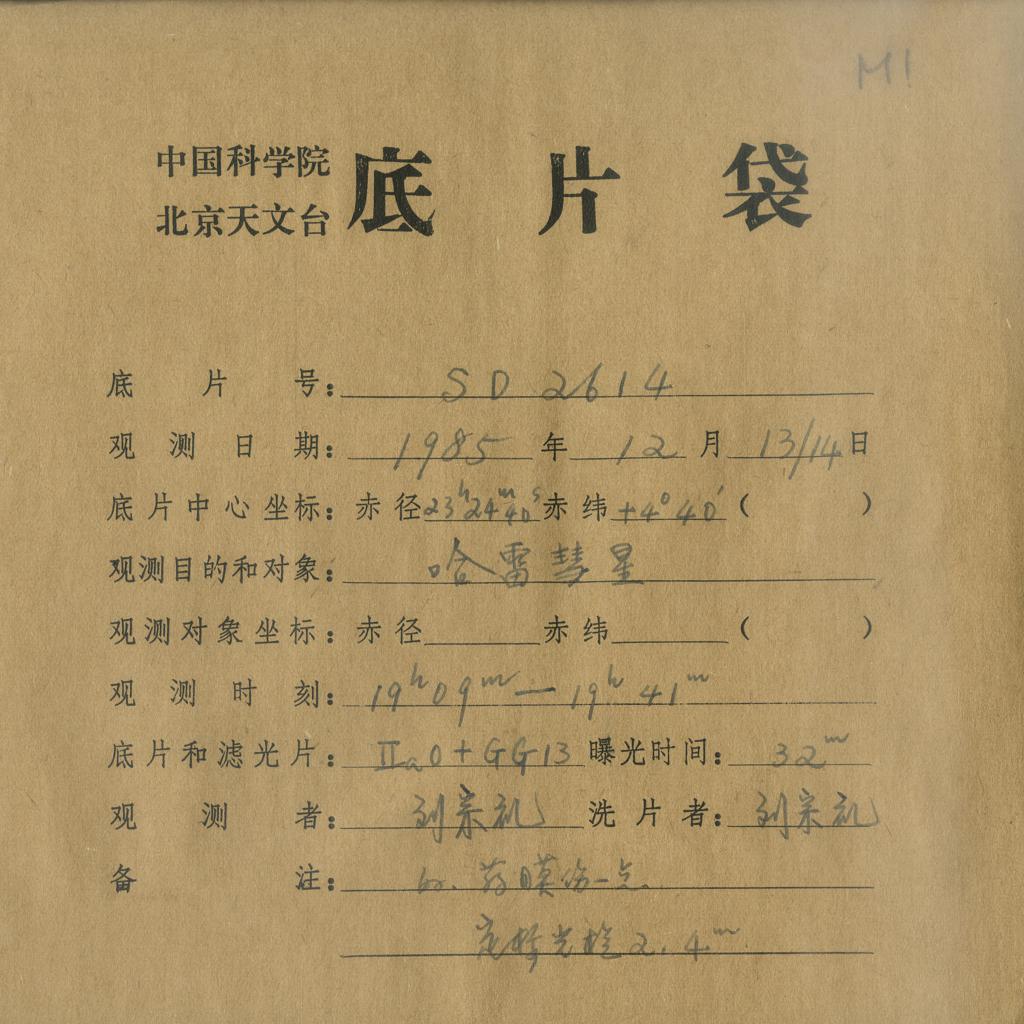 M1
中国科学院
北京天文台 底片袋
底片号: SD 2614
观测日期: 1985 年 12 月 13/14 日
底片中心坐标: 赤径 23h24m40s 赤纬 +4°40′ ( )
观测目的和对象: 哈雷彗星
观测对象坐标: 赤径 赤纬 ( )
观测时刻: 19h09m — 19h41m
底片和滤光片: IIaO+GG13 曝光时间: 32m
观测者: 刘宗礼 洗片者: 刘宗礼
备注: 药膜伤一点.
2.4m